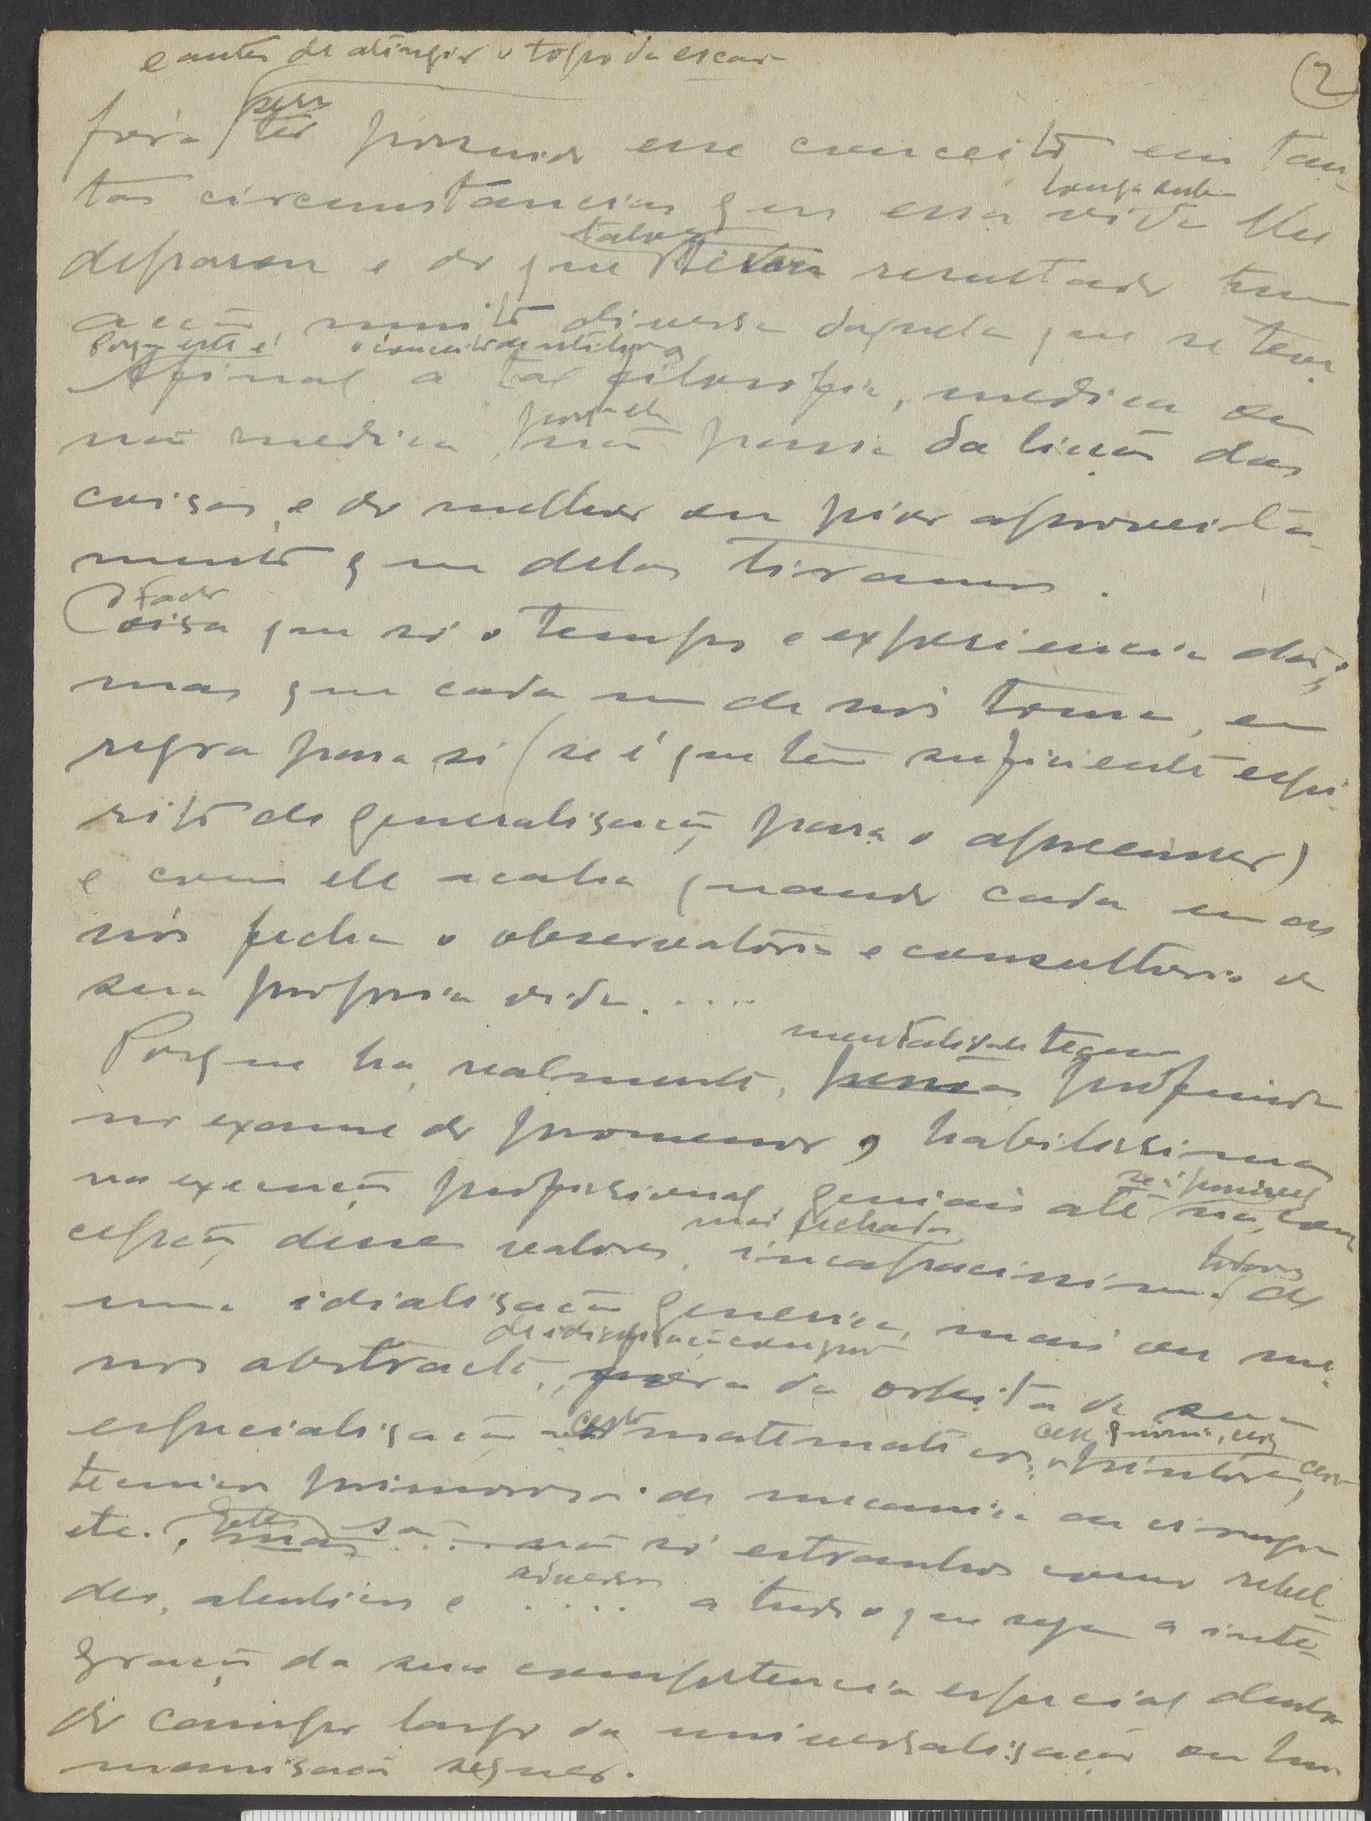 e antes de atingir o topo da escada
2
fôra ter possuido esse conceito em tan-
tas circumstancias que essa vida lhe
longa
deparou e do que resultado uma
talvez
acção muito diversa daquela que se teve.
Porque este é o conceito
Afinal a tal filosofia, medica ou
não medica, não passa da lição das
porque ela
coisas, e do melhor ou pior aproveita-
mento que delas tiramos.
O facto
Coisa que só o tempo e experiencia dão;
mas que cada um de nós toma, em
regra para si (se é que tem suficiente espi-
rito de generalisação para o apreender)
e com ele acaba quando cada um de
nós fecha o observatorio e consultorio da
sua propria vida.....
mentalidades
Porque ha, realmente, profundas
no exame do pormenor, habilissimas
na execução profissional, geniais até na con-
cepção desses valores, incapacissimas de
mas fechadas
todavia
uma idialisação generica, mais ou me-
nos abstracta, fóra da orbita da sua
especialisação matematicos, pintores,
certos
tecnico primoroso de mecanica ou cirurgia
etc., não só estranhos como rebel-
Estes são
des, alheios e .... a tudo o que seja a inte-
gração da sua competencia especial dentro
do campo largo da universalisação ou hu-
manisação sequer.